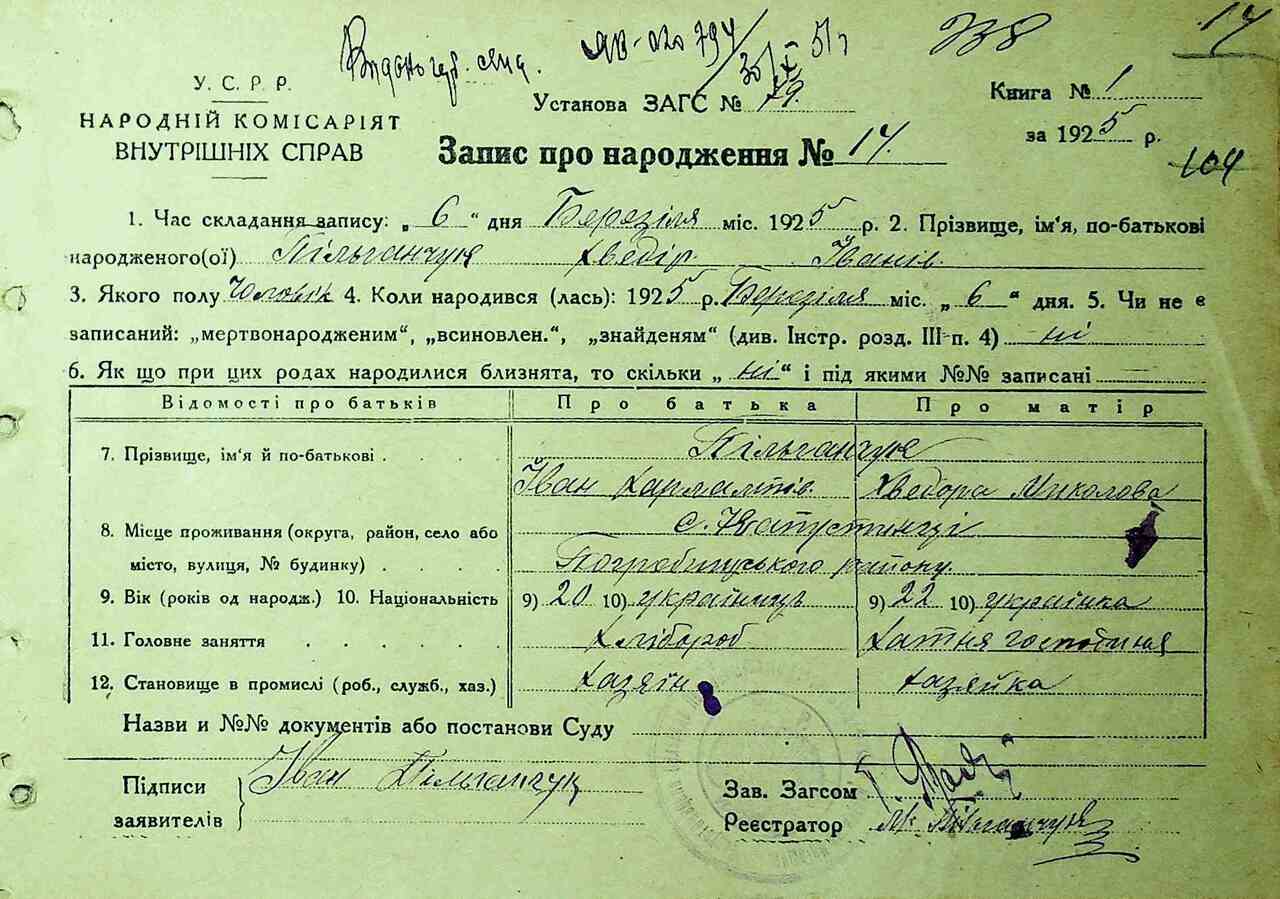 738
14
Установа ЗАГС № 79.
Книга № 1
за 1925 р.
104
У. С. Р. Р.
НАРОДНІЙ КОМІСАРІЯТ
ВНУТРІШНІХ СПРАВ
Запис про народження № 14.
1. Час складання запису: „ 6 “ дня Березіля міс. 1925 р. 2. Прізвище, ім'я, по-батькові
народженого(ої) Пільганчук Хведір. Іванів.
3. Якого полу Чоловік 4. Коли народився (лась): 1925 р. Березіля міс. „ 6 “ дня. 5. Чи не є
записаний: „мертвонародженим“, „всиновлен.“, „знайденям“ (див. Інстр. розд. III-п. 4) ні
6. Як що при цих родах народилися близнята, то скільки „ ні “ і під якими №№ записані
Відомості про батьків Про батька Про матір
7. Прізвище, ім'я й по-батькові . . . . Пільганчук
Іван Харлампів. Хведора Миколова
8. Місце проживання (округа, район, село або с. Капустинці
місто, вулиця, № будинку) . . . . Погребищського району.
9. Вік (років од народж.) 10. Національність 9) 20 10) українець 9) 22 10) українка
11. Головне заняття . . . . . Хлібороб Хатня господиня
12. Становище в промислі (роб., служб., хаз.) Хазяїн Хазяйка
Назви и №№ документів або постанови Суду
Підписи Іван Пільганчук Зав. Загсом
заявителів Реєстратор Пільганчук